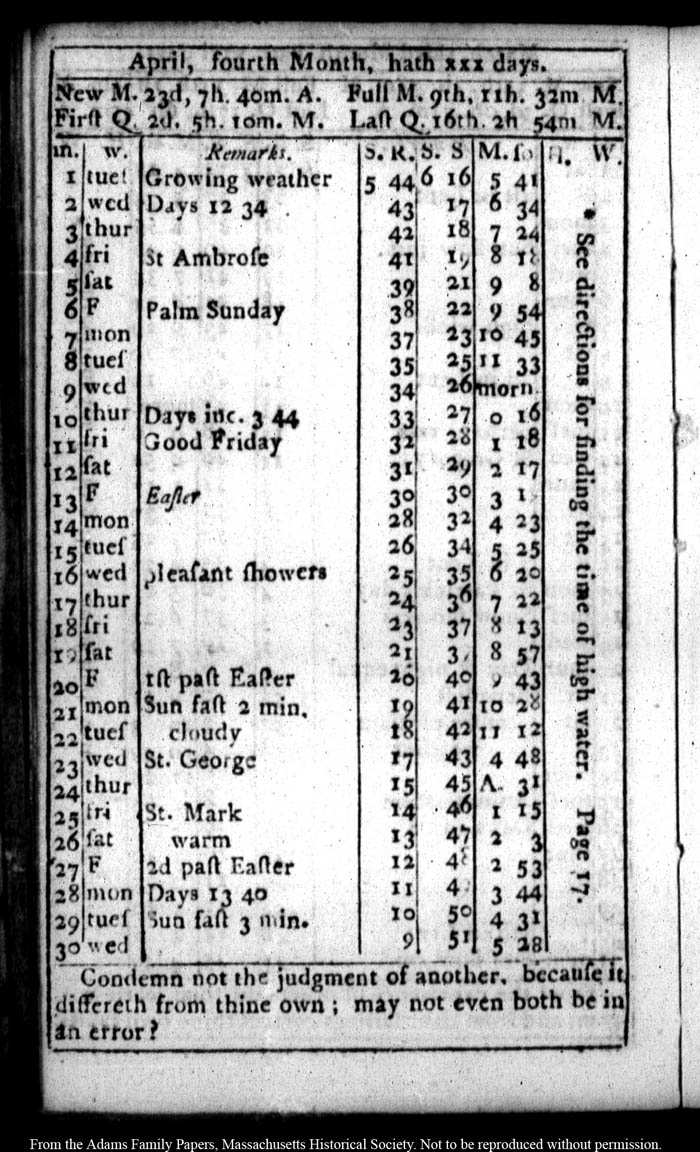 April, fourth Month, hath xxx days.
New M. 23d, 7h. 40m. A. Full M. 9th, 11h. 32m M.
Firſt Q. 2d. 5h. 10m. M. Laſt Q. 16th. 2h 54m M.
m. w. Remarks. S. R. S. S M. ſo H. W.
1 tueſ Growing weather 5 44 6 16 5 41
2 wed Days 12 34 43 17 6 34
3 thur 42 18 7 24
4 fri St Ambroſe 41 19 8 18
5 ſat 39 21 9 8
6 F Palm Sunday 38 22 9 54
7 mon 37 23 10 45
8 tueſ 35 25 11 33
9 wed 34 26 morn.
10 thur Days inc. 3 44 33 27 0 16
11 fri Good Friday 32 28 1 18
12 ſat 31 29 2 17
13 F Eaſter 30 30 3
14 mon 28 32 4 23
15 tueſ 26 34 5 25
16 wed pleaſant ſhowers 25 35 6 20
17 thur 24 36 7 22
18 fri 23 37 8 13
19 ſat 21 8 57
20 F 1ſt paſt Eaſter 20 40 9 43
21 mon Sun faſt 2 min. 19 41 10 28
22 tueſ cloudy 18 42 11 12
23 wed St. George 17 43 4 48
24 thur 15 45 A. 31
25 fri St. Mark 14 46 1 15
26 ſat warm 13 47 2 3
27 F 2d paſt Eaſter 12 2 53
28 mon Days 13 40 11 3 44
29 tueſ Sun faſt 3 min. 10 50 4 31
30 wed 9 51 5 28
* See directions for finding the time of high water. Page 17.
Condemn not the judgment of another, becauſe it
differeth from thine own ; may not even both be in
an error?
From the Adams Family Papers, Massachusetts Historical Society. Not to be reproduced without permission.